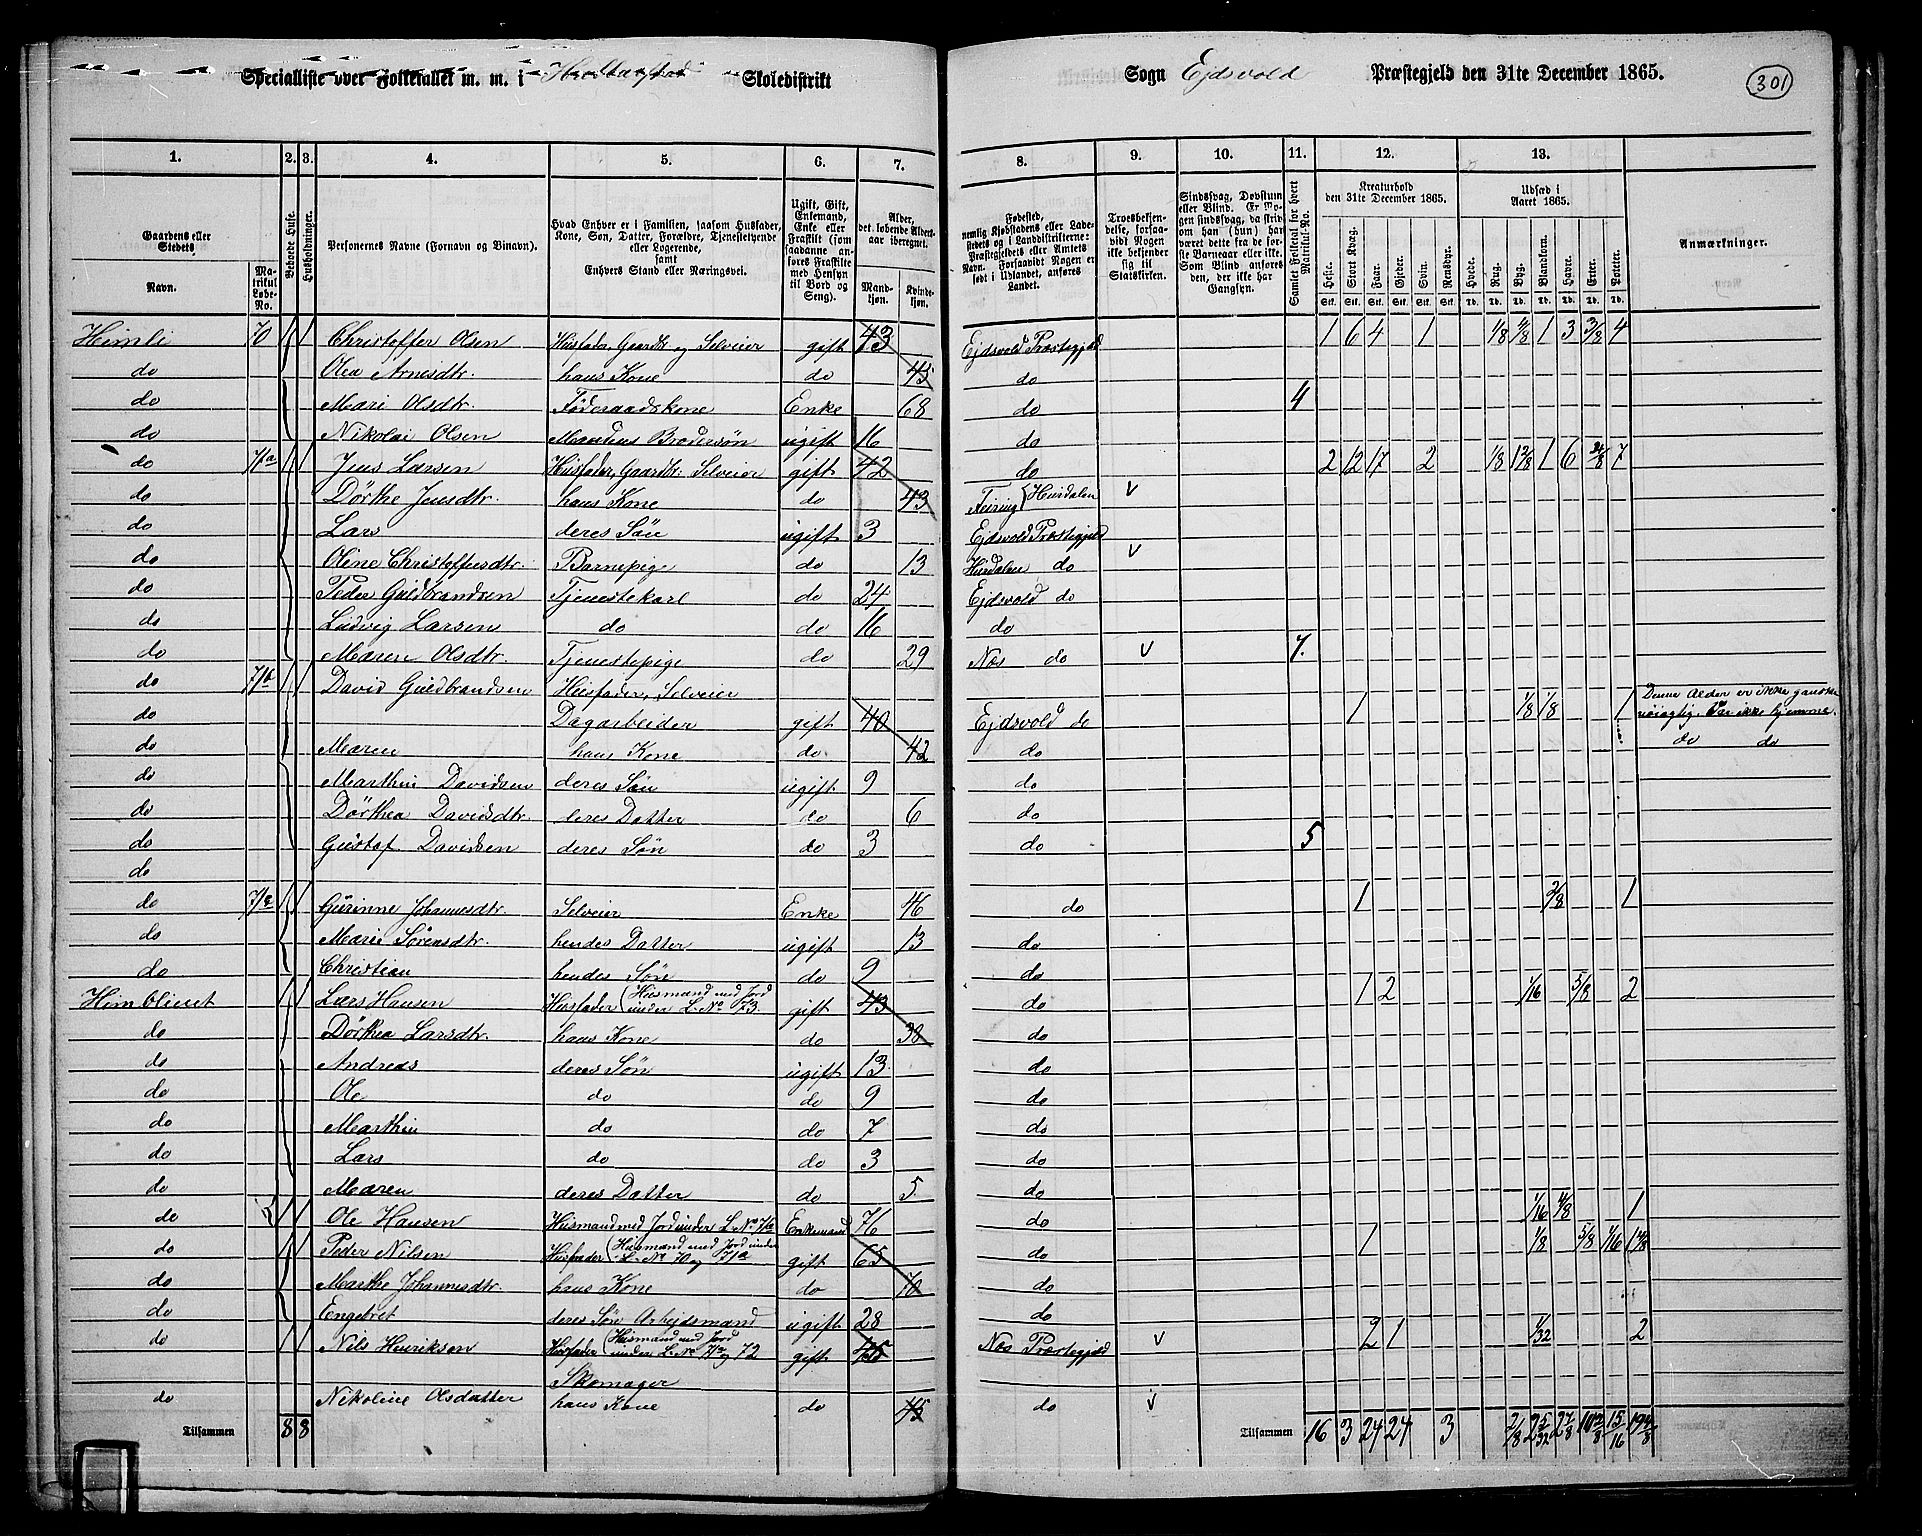 Specialliste over Folketallet m. m. i Skoledistrikt
Sogn Ejdsvold Præstegjeld den 31te December 1865.
301
1. 2. 3. 4. 5. 6. 7. 8. 9. 10. 11. 12. 13.
Gaardens eller Stedets
Navn.
Matrikul Løbe-No.
Beboede Huse.
Husholdninger.
Personernes Navne (Fornavn og Binavn).
Hvad Enhver er i Familien, saasom Husfader, Kone, Søn, Datter, Forældre, Tjenestetyende eller Logerende, samt Enhvers Stand eller Næringsvei.
Ugift, Gift, Enkemand, Enke eller Fraskilt (som saadanne anføres Fraskilte med Hensyn til Bord og Seng).
Alder, det løbende Alders-aar iberegnet.
Mandkjøn.
Kvindekjøn.
Fødested, nemlig Kjøbstadens eller Ladestedets og i Landdistrikterne: Præstegjeldets eller Amtets Navn. Forsaavidt Nogen er født i Udlandet, anføres Landet.
Troesbekjendelse, forsaavidt Nogen ikke bekjender sig til Statskirken.
Sindssvag, Døvstum eller Blind. Er Nogen sindssvag, da skrives om han (hun) har været dette fra de første Barneaar eller ikke. Som Blind anføres den, der ikke har Gangsyn.
Samlet Folketal for hvert Matrikul-No.
Kreaturhold den 31te December 1865.
Heste. Stort Kvæg. Faar. Gjeder. Svin. Rensdyr.
Udsæd i Aaret 1865.
Hvede. Rug. Byg. Blandkorn. Havre. Erter. Poteter.
Anmærkninger.
Himli 70 1 1 Christoffer Olsen Husfader Gaardbr og Selveier gift 43 Ejdsvold Præstegjæld 1 6 4 1 1/8 1 3 3/8 4
do Olea Arnesdtr. hans Kone do 45 do
do Mari Olsdtr. Föderaadskone Enke 68 do 4
do Nikolai Olsen Mandens Brodersøn ugift 16 do
do 71a 1 1 Jens Larsen Husfader, Gaardbr. Selveier gift 42 do 2 12 17 2 1/8 1 6 7
do Dörthe Jensdtr. hans Kone do 43 Feiring (Hurdalen v
do Lars deres Sön ugift 3 Ejdsvold Præstegjæld
do Oline Christoffersdtr. Barnepige do 13 Hurdalen do v
do Peder Guldbrandsen Tjenestekarl do 24 Ejdsvold do
do Ludvig Larsen do do 16 do
do Maren Olsdtr. Tjenestepige do 29 Næs do v 7.
do 71b 1 1 David Guldbrandsen Husfader, Selveier
do Dagarbeider gift 40 Ejdsvold do 1 1/8 1/8 1 Denne Alder er ikke ganske nöiagtig. Var ikke hjemme.
do Maren hans Kone do 42 do do do
do Marthin Davidsen deres Sön ugift 9 do
do Dörthea Davidsdtr. deres Datter do 6 do
do Gustaf Davidsen deres Sön do 3 do 5
do
do 1 1 Gurinne Johannesdtr. Selveier Enke 46 do 1 2/8 1
do Marie Sörensdtr. hendes Datter ugift 13 do
do Christian hendes Sön do 9 do
Himblieut 1 1 Lars Hansen Husfader (Husmand med Jord under L. No 73. gift 43 do 1 2 1/16 5/8 2
do Dörthea Larsdtr. hans Kone do 38 do
do Andreas deres Sön ugift 13 do
do Ole do do 9 do
do Marthin do do 7 do
do Lars do do 3 do
do Maren deres Datter do 5 do
do 1 1 Ole Hansen Husmand med Jord under L. No 71a Enkemand 76 do 1/16 4/8 1
do 1 1 Peder Nilsen Husfader (Husmand med Jord under L. No 70 og 71a gift 65 do 1 1/8 5/8 1/16 1 4/8
do Marthe Johannesdtr. hans Kone do 70 do
do Engebret deres Sön Arbejdsmand ugift 28 do
do 1 1 Nils Henriksen Husfader (Husmand med Jord under L. No 71a og 72 gift 45 Næs Præstegjæld v 2 1 1/32 2
Skomager
do Nikoline Olsdatter hans Kone do 45 do v
Tilsammen 8 8
Tilsammen 16 3 24 24 3 2/8 2 5/32 2 7/8 10 2/8 15/16 19 4/8